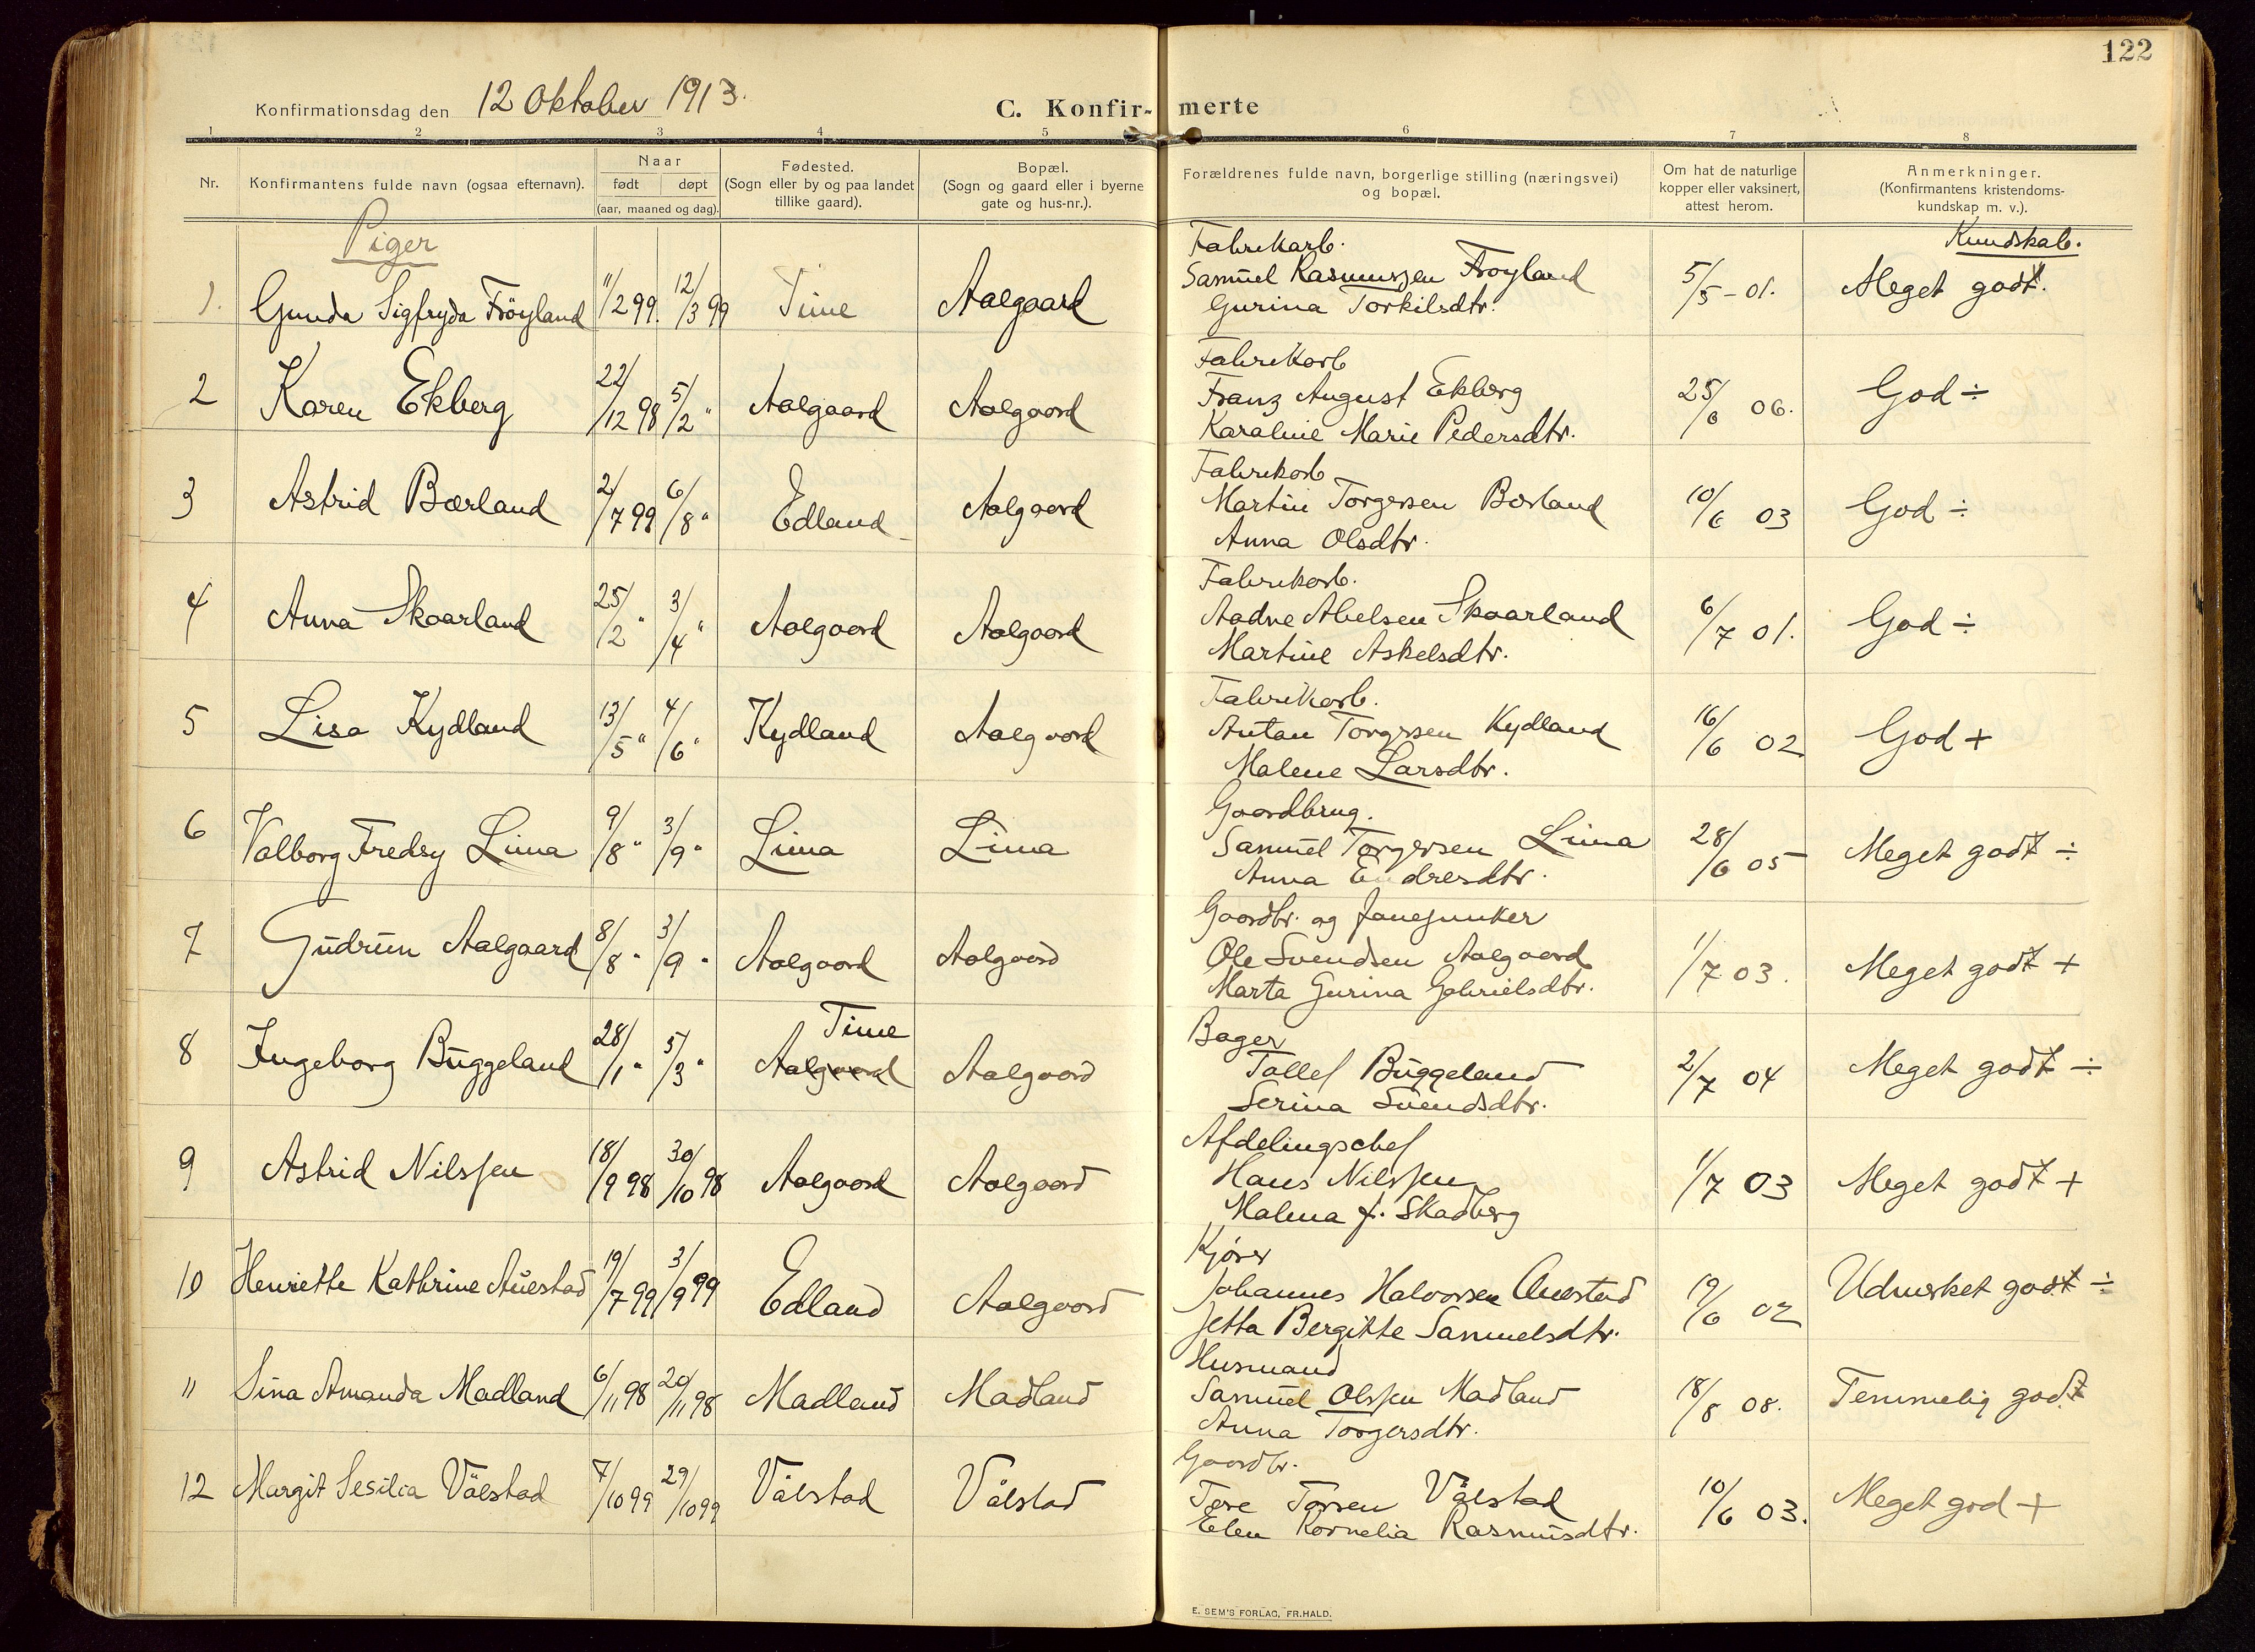 122
Konfirmationsdag den 12 Oktober 1913.
C. Konfir- merte
1 2 3 4 5 6 7 8
Nr.
Konfirmantens fulde navn (ogsaa efternavn).
Naar
født døpt
(aar, maaned og dag).
Fødested.
(Sogn eller by og paa landet
tillike gaard).
Bopæl.
(Sogn og gaard eller i byerne
gate og hus-nr.).
Forældrenes fulde navn, borgerlige stilling (næringsvei)
og bopæl.
Om hat de naturlige
kopper eller vaksinert,
attest herom.
Anmerkninger.
(Konfirmantens kristendoms-
kundskap m. v.).
Piger
Kundskab.
Fabrikarb.
1. Gunda Sigfryda Fröyland 11/2 99. 12/3 99 Time Aalgaard Samüel Rasmussen Frøyland 5/5 - 01. Meget godt.
Gurina Torkilsdtr.
Fabrikarb
2 Karen Ekberg 22/12 98 5/2 " Aalgaard Aalgaard Franz August Ekberg 25/6 06. God ÷
Karaline Marie Pedersdtr.
Fabrikarb
3 Astrid Bærland 2/7 99 6/8 " Edland Aalgaard Martin Torgersen Bærland 10/6 03 God ÷
Anna Olsdtr.
Fabrikarb.
4 Anna Skaarland 25/2 " 3/4 " Aalgaard Aalgaard Aadne Abelsen Skaarland 6/7 01. God ÷
Martine Askelsdtr.
Fabrikarb.
5 Lisa Kydland 13/5 " 4/6 " Kydland Aalgaard Antan Torgersen Kydland 16/6 02 God +
Malene Larsdtr.
Gaardbrug.
6 Valborg Fredsy Lima 9/8 " 3/9 " Lima Lima Samüel Torgersen Lima 28/6 05 Meget godt ÷
Anna Endresdtr.
Gaardbr. og
7 Güdrün Aalgaard 8/8 " 3/9 " Aalgaard Aalgaard Ole Svendsen Aalgaard 1/7 03. Meget godt +
Marta Gurina Gabrielsdtr.
Time
Bager
8 Ingeborg Büggeland 28/1 " 5/3 " Aalgaard Aalgaard Tallef Büggeland 2/7 04 Meget godt ÷
Serina Svendsdtr.
Afdelingschef
9 Astrid Nilssen 18/9 98 30/10 98 Aalgaard Aalgaard Hans Nilssen 1/7 03 Meget godt +
Malena f. Skadberg
Kjører
10 Henriette Kathrine Aüestad 19/7 99 3/9 99 Edland Aalgaard Johannes Halvorsen Auestad 19/6 02 Udmerket godt ÷
Jetta Bergitte Samuelsdtr.
Husmand
11 Sina Amanda Madland 6/11 98 20/11 98 Madland Madland Samüel Olssen Madland 18/8 08. Temmelig godt
Anna Torgersdtr.
Gaardbr.
12 Margit Sesilia Vålstad 7/10 99 29/10 99 Vålstad Vålstad Tore Torsen Vålstad 10/6 03. Meget god +
Elen Kornelia Rasmüsdtr.
E. SEM'S FORLAG, FR.HALD.